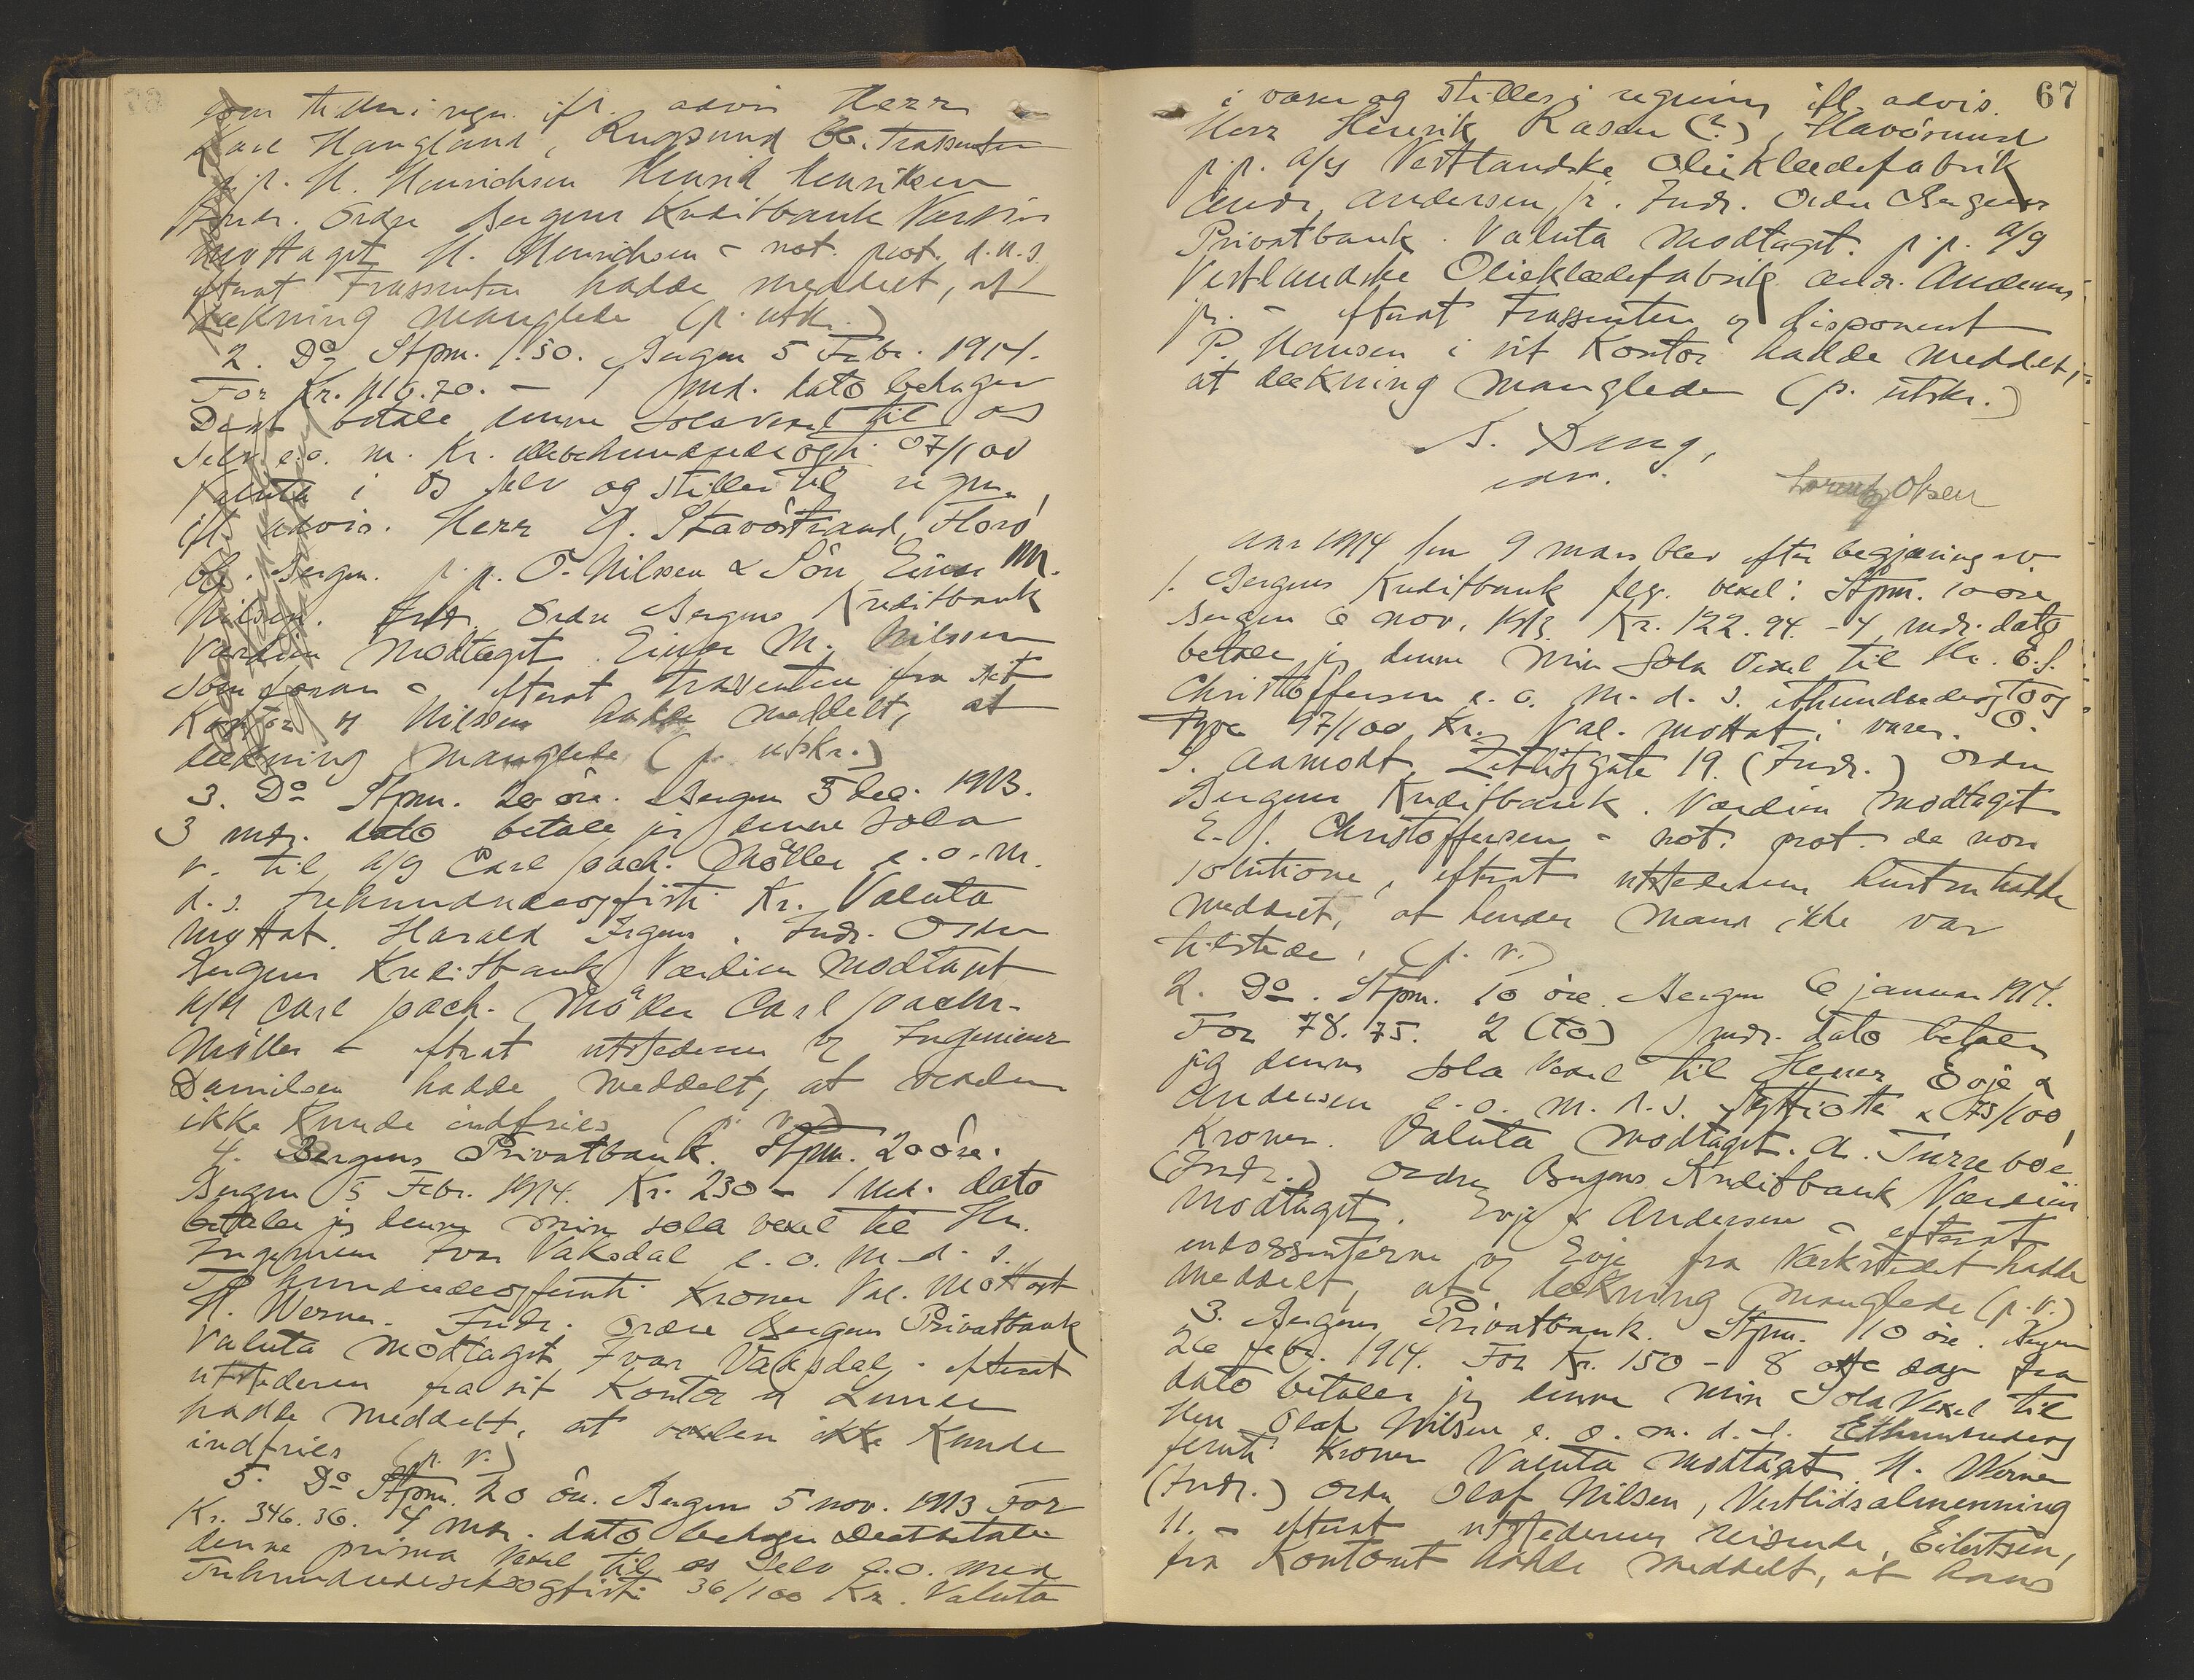 ifl. advis Herr
Karl Haugland, Rugsund
p.p. H. Henrichsen Henrik Henriksen
Indr. Ordre Bergens Kreditbank Værdien
mottaget H. Henrichsen - not. prot. d.n.s.
efterat Trassenten hadde meddelt, at
dækning manglede (p. utskr.)
2. Do Stpm. 1.50. Bergen 5 Febr. 1914.
For Kr. - 1 md. dato behager
De at betale denne til os
selv e.o. m. Kr. 07/100
Valuta i os selv og stilles til regn.
ifl. advis. Herr G. Stavöstrand, Florö
Bergen. p.p. O. Nilssen & Sön Einar M.
Nilssen. Indr. Ordre Bergens Kreditbank
Værdien Modtaget. Einar M. Nilssen
som foran - efterat trassenten fra sit
Kontor v Nilssen hadde meddelt, at
dækning manglede (p. utskr.)
3. Do Stpm. 20 öre. Bergen 5 dec. 1913.
3 mdr. dato betaler jeg denne sola
v. til A/S Carl Joach. Möller e.o.m.
d.s. trehundredeogfirti Kr. Valuta
mottat. Harald Irgens. Indr. Ordre
Bergens Kreditbank Værdien Modtaget
A/S Carl Joach. Möller Carl Joach.
Möller - efterat utstederen v Ingeniør
Danielsen hadde meddelt, at vexelen
ikke kunde indfries (p. v.)
4. Bergens Privatbank. Stpm. 20 öre.
Bergen 5 Febr. 1914. Kr. 230 - 1 md. dato
betaler jeg denne min sola vexel til Hr.
Ingeniør Ivar Vaksdal e.o.m.d.s.
Kroner Val. Mottat
H. Werner. Indr. ordre Bergens Privatbank
Valuta Modtaget Ivar Vaksdal - efterat
utstederen fra sit Kontor v
hadde meddelt, at vexelen ikke kunde
indfries (p. v.)
5. Do Stpm. 20 öre. Bergen 5 nov. 1913 For
Kr. 346.36. 4 mdr. dato behager De at betale
denne prima Vexel til os selv e.o. med
Trehundredeseksogfirti 36/100 Kr. Valuta
67
i varer og stilles i regning ifl. advis.
Herr Henrik Rasen (?), Havösund
p.p. A/S Vestlandske Oliekledefabrik
Andr. Andersen jr. Indr. Ordre Bergens
Privatbank. Valuta Modtaget. p.p. A/S
Vestlandske Olieklædefabrik Andr. Andersen
jr. - efterat Trassenten v disponent
P. Hansen i sit Kontor hadde meddelt,
at dækning manglede (p. utskr.)
Lorentz Olsen
Aar 1914 den 9 mars blev efter begjæring av
1. Bergens Kreditbank flg. vexel: Stpm. 10 öre
Bergen 6 nov. 1913. Kr. 122.94. - 4 mdr. dato
betaler jeg denne Min Sola Vexel til Hr. E. J.
Christoffersen e.o. m.d.s. ethundredeogtoog
tyve 97/100 Kr. Val. mottat i varer. O.
S. Aamodt Zetlitzgate 19. (Indr.) Ordre
Bergens Kreditbank. Værdien Modtaget
E. J. Christoffersen - not. prot. de non
solutione, efterat utstederens hustru hadde
meddelt, at hendes mand ikke var
tilstede. (p. v.)
2. Do. Stpm. 10 öre. Bergen 6 januar 1914.
For 78.75. 2 (to) mdr. dato betaler
jeg denne sola vexel til Herrer Evje &
Andersen e.o. m.d.s. Syttiotte & 75/100
Kroner. Valuta Modtaget. A. Turrebøe.
(Indr.) Ordre Bergens Kreditbank Værdien
Modtaget. Evje & Andersen - efterat
endossenterne v Evje fra Værkstedet hadde
meddelt, at dækning manglede (p.v.)
3. Bergens Privatbank. Stpm. 10 öre. Bergen
26 febr. 1914. For Kr. 150 - 8 otte dage fra
dato betaler jeg denne min Sola Vexel til
Herr Olaf Nilsen e.o.m.d.s. Ethundredeog
femti Kroner Valuta Modtaget H. Werner
(Indr.) Ordre Olaf Nilsen, Vestlidsalmenning
11. - efterat utstederens reisende, Eilertsen,
fra Kontoret hadde meddelt, at hans